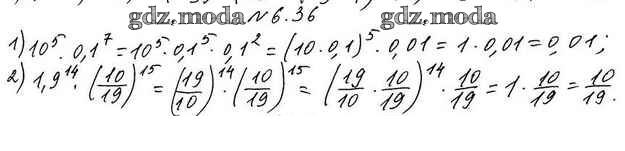 gdz.moda № 6.36 gdz.moda
1) 10⁵ · 0,1⁷ = 10⁵ · 0,1⁵ · 0,1² = (10 · 0,1)⁵ · 0,01 = 1 · 0,01 = 0,01;
2) 1,9¹⁴ · (10/19)¹⁵ = (19/10)¹⁴ · (10/19)¹⁵ = (19/10 · 10/19)¹⁴ · 10/19 = 1 · 10/19 = 10/19.